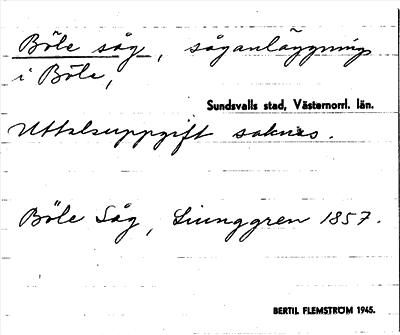 Böle såg, såganläggning
i Böle,
Sundsvalls stad, Västernorrl. län.
Uttalsuppgift saknas.
Böle Såg, Ljunggren 1857.
BERTIL FLEMSTRÖM 1945.